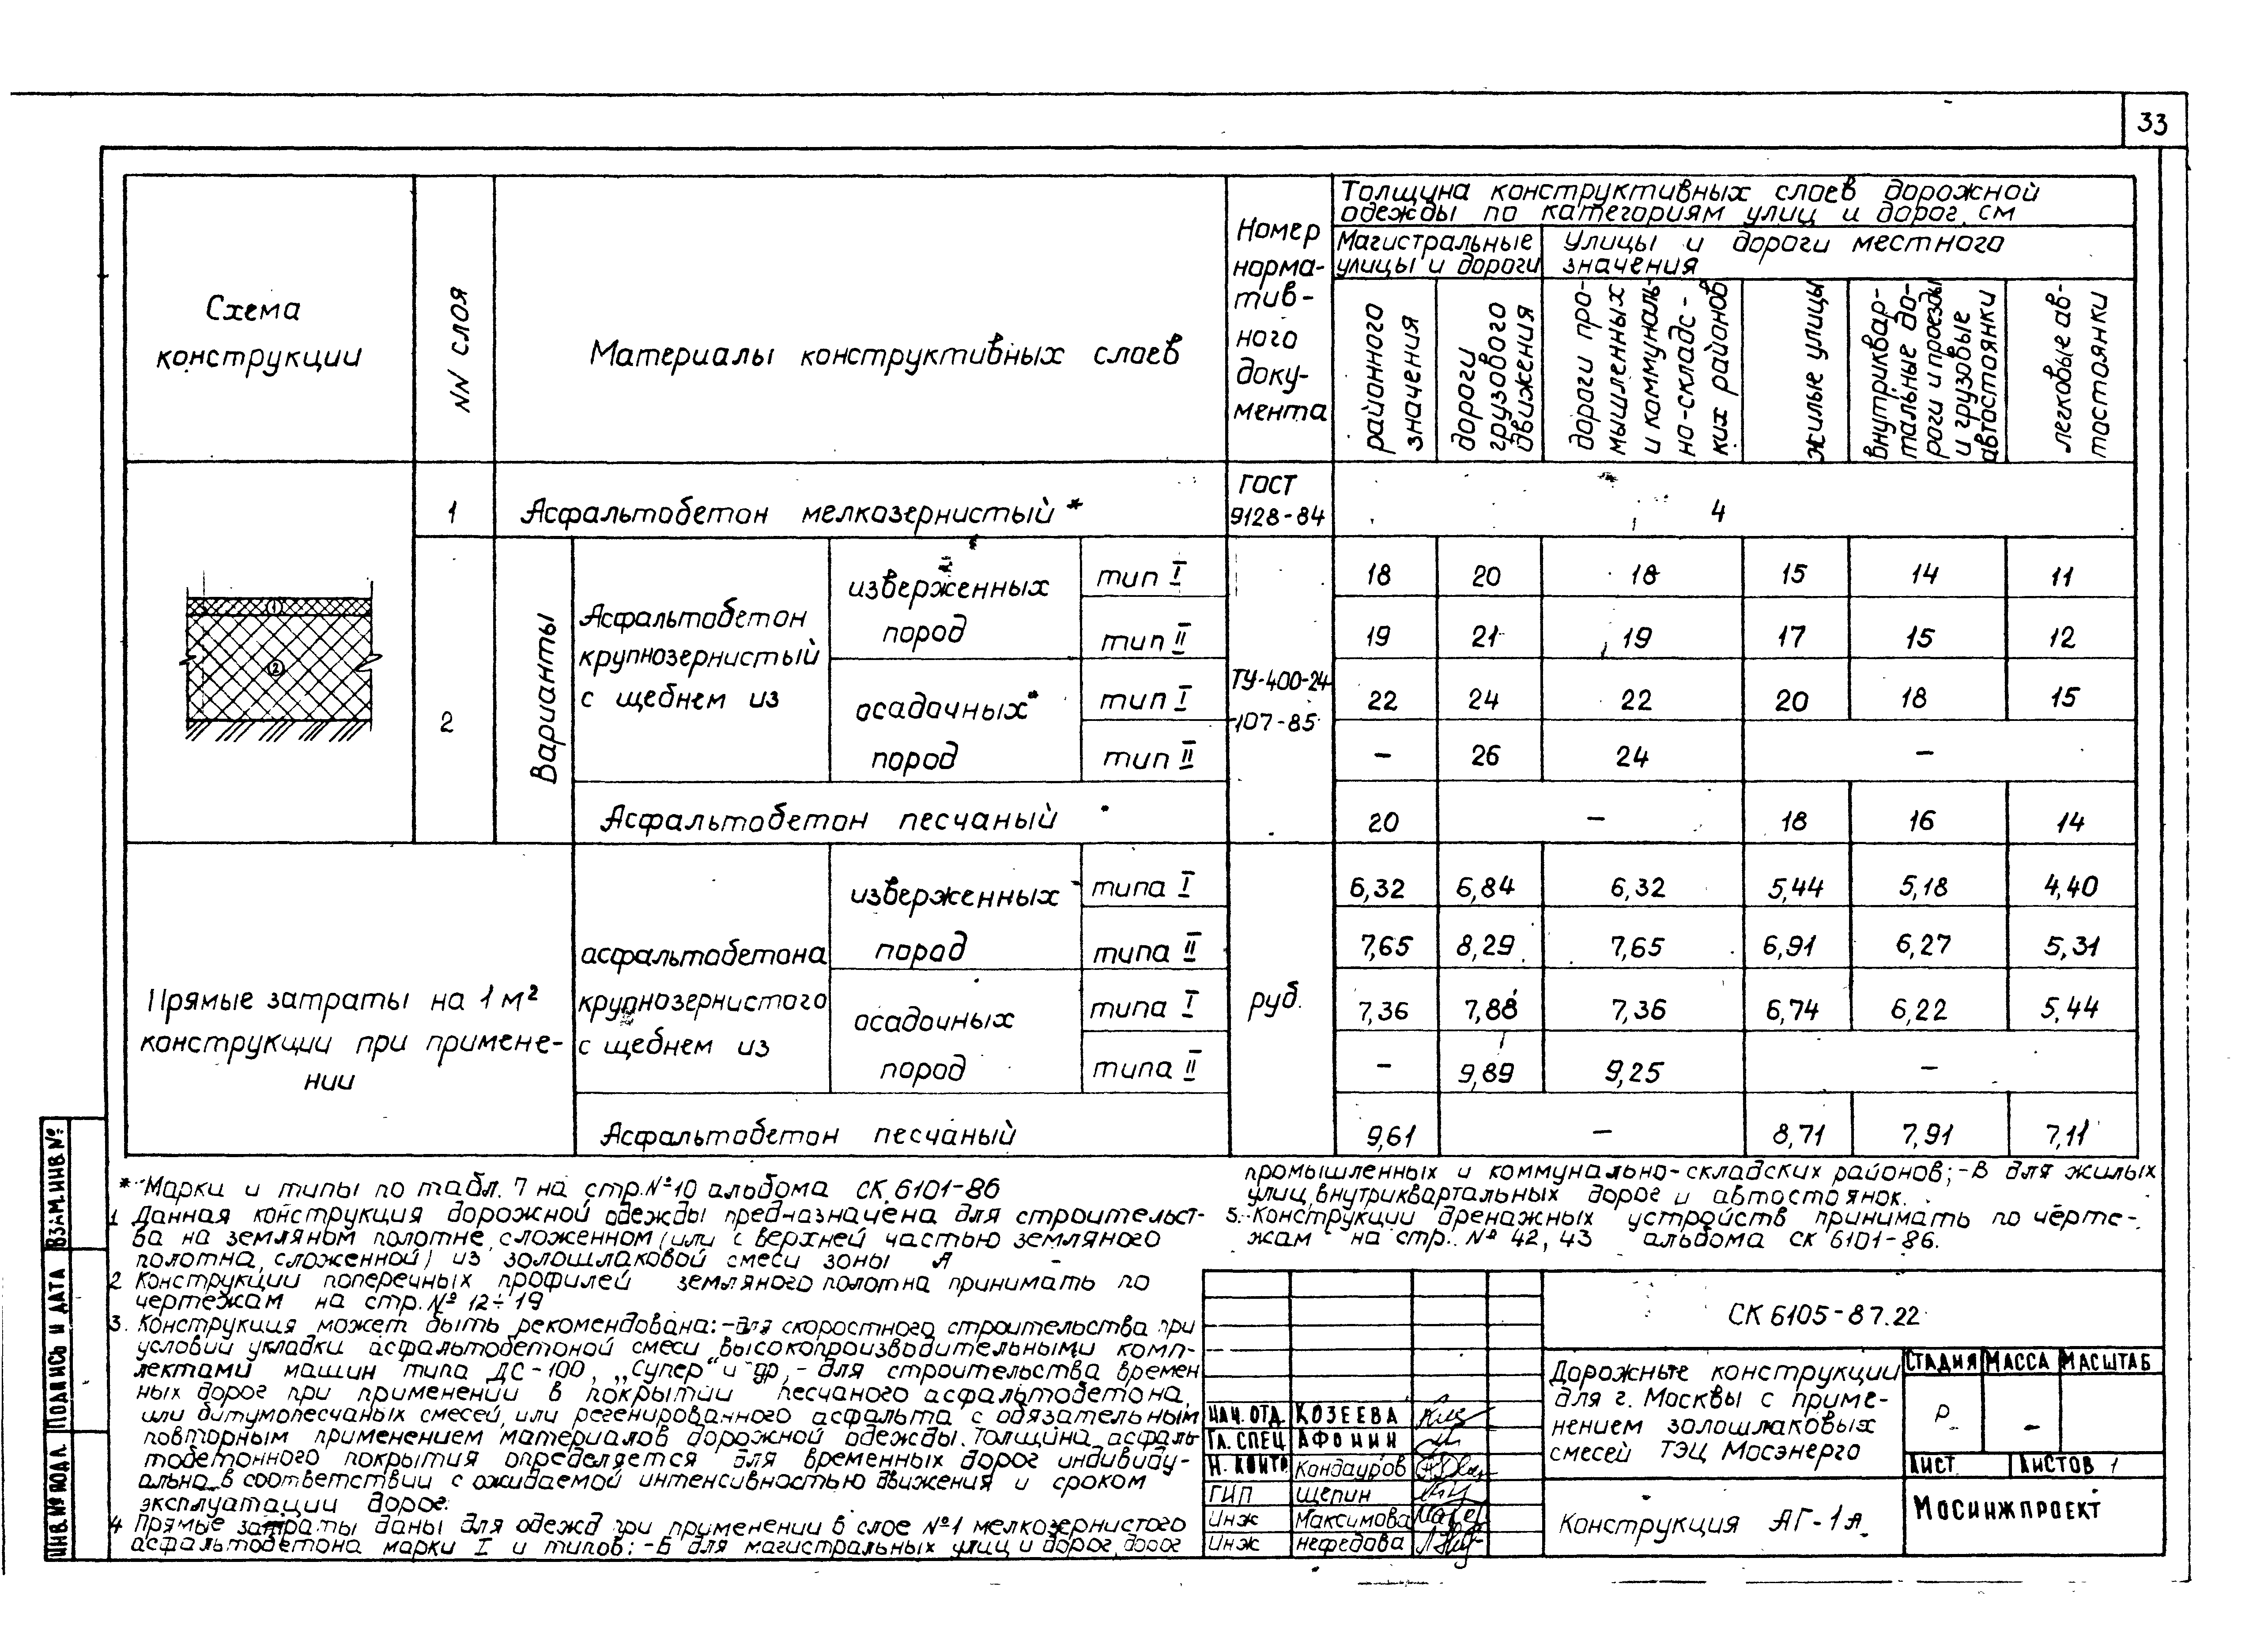 33
Схема
конструкции
NN слоя
Материалы конструктивных слоев
Номер
норма-
тив-
ного
доку-
мента
Толщина конструктивных слоев дорожной
одежды по категориям улиц и дорог, см
Магистральные
улицы и дороги
Улицы и дороги местного
значения
районного
значения
дороги
грузового
движения
дороги про-
мышленных
и коммуналь-
но-складс-
ких районов
жилые улицы
внутриквар-
тальные до-
роги и проезды
и грузовые
автостоянки
легковые ав-
тостоянки
1
Асфальтобетон мелкозернистый *
ГОСТ
9128-84
4
1
2
2
Варианты
Асфальтобетон
крупнозернистый
с щебнем из
изверженных
пород
осадочных*
пород
ТУ-400-24
-107-85
тип I 18 20 18 15 14 11
тип II 19 21 19 17 15 12
тип I 22 24 22 20 18 15
тип II – 26 24 –
Асфальтобетон песчаный 20 – 18 16 14
Прямые затраты на 1 м²
конструкции при примене-
нии
асфальтобетона
крупнозернистого
с щебнем из
изверженных
пород
осадочных
пород
руб.
типа I 6,32 6,84 6,32 5,44 5,18 4,40
типа II 7,65 8,29 7,65 6,91 6,27 5,31
типа I 7,36 7,88 7,36 6,74 6,22 5,44
типа II – 9,89 9,25 –
Асфальтобетон песчаный 9,61 – 8,71 7,91 7,11
* Марки и типы по табл. 7 на стр. №10 альбома СК 6101-86
1 Данная конструкция дорожной одежды предназначена для строительст-
ва на земляном полотне, сложенном (или с верхней частью земляного
полотна, сложенной) из золошлаковой смеси зоны А
2 Конструкции поперечных профилей земляного полотна принимать по
чертежам на стр. № 12÷19
3. Конструкция может быть рекомендована: -для скоростного строительства при
условии укладки асфальтобетоной смеси высокопроизводительными комп-
лектами машин типа ДС-100, „Супер" и др, - для строительства времен
ных дорог при применении в покрытии песчаного асфальтобетона,
или битумопесчаных смесей, или регенированного асфальта с обязательным
повторным применением материалов дорожной одежды. Толщина асфаль
тобетонного покрытия определяется для временных дорог индивиду-
ально в соответствии с ожидаемой интенсивностью движения и сроком
эксплуатации дорог.
4 Прямые затраты даны для одежд при применении в слое №1 мелкозернистого
асфальтобетона марки I и типов: -Б для магистральных улиц и дорог, дорог
промышленных и коммунально-складских районов; -В для жилых
улиц, внутриквартальных дорог и автостоянок.
5. Конструкции дренажных устройств принимать по черте-
жам на стр. № 42, 43 альбома СК 6101-86.
СК 6105-87.22
Дорожные конструкции
для г. Москвы с приме-
нением золошлаковых
смесей ТЭЦ Мосэнерго
Стадия Масса Масштаб
Р –
Лист Листов 1
Конструкция АГ-1А
Мосинжпроект
Нач. отд. Козеева
Гл. спец Афонин
Н. контр Кондауров
ГИП Щепин
Инж Максимова
Инж Нефедова
Взам. инв №
Подпись и дата
Инв. № подл.